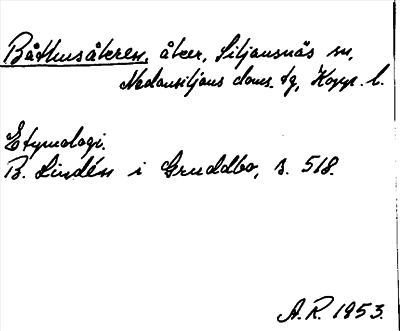 Båthusåkern, åker, Siljansnäs sn,
Nedansiljans doms. tg, Kopp. l.
Etymologi.
B. Lindén i Gruddbo, s. 518.
A.R. 1953.